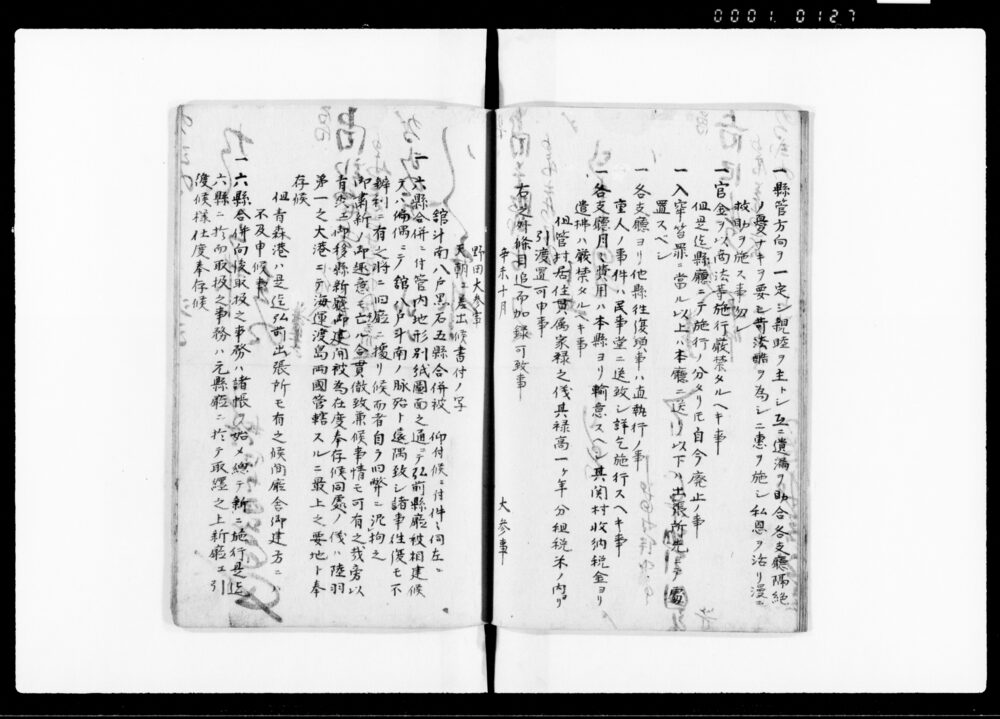 0001 0127
一縣管方向ヲ一定シ親睦ヲ主トシ互ニ遺漏ヲ助合各支廳隔絶
ノ憂ナキヲ要シ苛法酷ヲ為シニ恵ヲ施シ私恩ヲ沽リ漫ニ
救助ヲ施ス事勿レ
一官金ヲ以商法等施行厳禁タルヘキ事
但是迄縣廳ニテ施行ノ分タリ𪜈自今廃止ノ事
一入窂笞罪ニ當ル以上ハ本廳ニ送リ以下ハ出張所先ニテ處
置スベシ
一各支廳ヨリ他縣往復瑣事ハ直執行ノ事
重大ノ事件ハ民事堂ニ送致シ詳乞施行スヘキ事
一各支廳月々費用ハ本縣ヨリ輸意スヘシ其関村收納税金ヨリ
遣拂ハ厳禁タルヘキ事
但管村居住貫属家禄之儀其禄高一ヶ年分租税米ノ内ヲ
引渡置可申事
右之外條目追而加録可致事
辛未十月
大参事
野田大参事
天朝エ差出候書付ノ写
舘斗南八戸黒石五縣合併被 仰付候ニ付件々伺左ニ
一六縣合併ニ付管内地形別紙圖面之通ニテ弘前縣廳被相建候
テハ偏偶ニテ舘八戸斗南ノ脉殆ト遠隅致シ諸事往復モ不
辨利ニ有之将ニ旧廳ニ據リ候而者自ラ旧弊ニ泥拘之
御肅新ノ御趣意モ亡ル合貫徹致兼候事情モ可有之哉旁以
有無エ御移縣新廳御建聞被為在度奉存候同處ノ儀ハ陸羽
第一之大港ニテ海運渡島両國管轄スルニ最上之要地ト奉
存候
但青森港ハ是迄弘前出張所モ有之候間廳舎御建方ニ
不及申候
一六縣合併向後取扱之事務ハ諸帳ヲ始メ總テ新ニ施行是迄
六縣ニ於而取扱之事務ハ元縣廳ニ於テ取纒之上新廳エ引
渡候様仕度奉存候